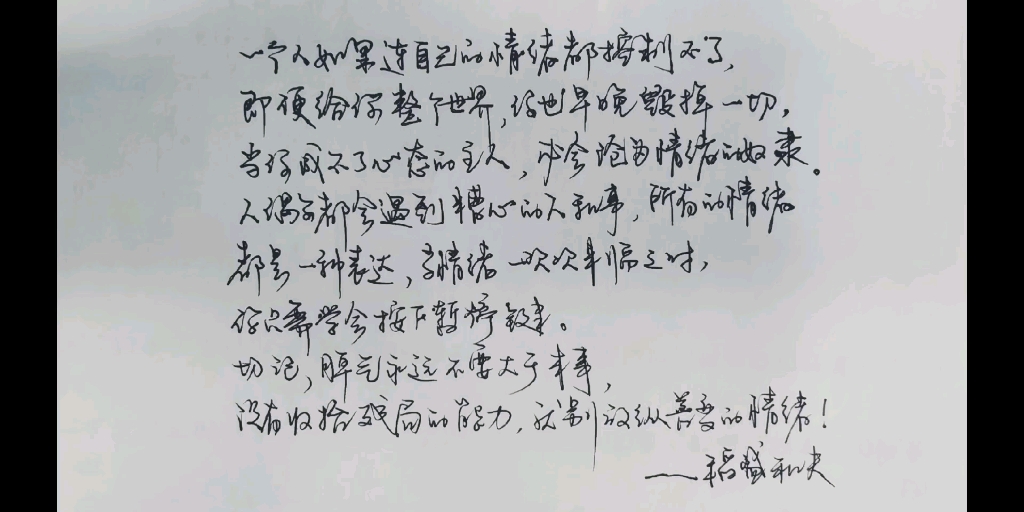 一个人如果连自己的情绪都控制不了,
即便给你整个世界,你也早晚毁掉一切。
当你成不了心态的主人,必会沦为情绪的奴隶。
人偶尔都会遇到糟心的人和事,所有的情绪
都是一种表达,当情绪一次次来临之时,
你只需学会按下暂停键。
切记,脾气永远不要大于本事,
没有收拾残局的能力,就别放纵善变的情绪!
——稻盛和夫